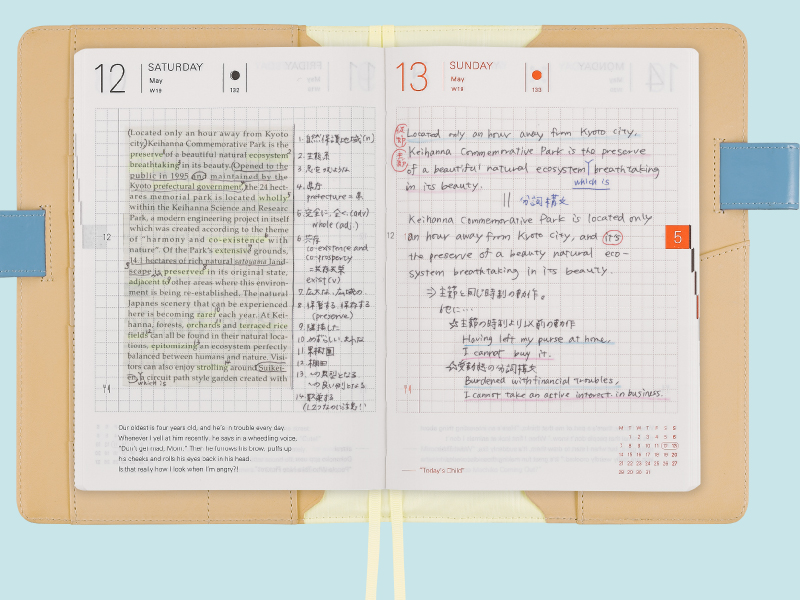 12
SATURDAY
May
W19
132
(Located only an hour away from Kyoto
city) Keihanna Commemorative Park is the
preserve of a beautiful natural ecosystem
breathtaking in its beauty. Opened to the
public in 1995 and maintained by the
Kyoto prefectural government, the 24 hect-
ares memorial park is located wholly
within the Keihanna Science and Researc
Park, a modern engineering project in itself
which was created according to the theme
of "harmony and co-existence with
nature". Of the Park's extensive grounds,
14.1 hectares of rich natural satoyama land-
scape is preserved in its original state,
adjacent to other areas where this environ-
ment is being re-established. The natural
Japanes scenery that can be experienced
here is becoming rarer each year. At Kei-
hanna, forests, orchards and terraced rice
fields can all be found in their natural loca-
tions, epitomizing an ecosystem perfectly
balanced between humans and nature. Visi-
tors can also enjoy strolling around Suikei-
en, a circuit path style garden created with
which is
12
1. 自然保護地域(n)
2. 生態系
3. 息をのむような
4. 県庁
prefecture = 県
5. 完全に、全く(adv)
whole (adj.)
6. 共存
co-existence and
co-prosperity
= 共存共栄
exist (v)
7. 広大な、広域の
8. 保護する、保存する
(preserve)
9. 隣接した
10. めずらしい、まれな
11. 果樹園
12. 棚田
13. への典型となる
への良い例となる
14. 散策する
Our oldest is four years old, and he's in trouble every day.
Whenever I yell at him recently, he says in a wheedling voice,
"Don't get mad, Mom." Then he furrows his brow, puffs up
his cheeks and rolls his eyes back in his head.
Is that really how I look when I'm angry?!
13
SUNDAY
May
W19
133
従節
Located only an hour away from Kyoto city,
主節
Keihanna Commemorative Park is the preserve
of a beautiful natural ecosystem breathtaking
which is
in its beauty.
分詞構文
Keihanna Commemorative Park is located only
12
an hour away from Kyoto city, and it's
5
the preserve of a beauty natural eco-
system breathtaking in its beauty.
⇒主節と同じ時制の動作。
他に…
☆主節の時制より以前の動作
Having left my purse at home,
I cannot buy it.
☆受動態の分詞構文
Burdened with financial troubles,
I cannot take an active interest in business.
"Today's Child"
M T W T F S S
1 2 3 4 5 6
7 8 9 10 11 12 13
14 15 16 17 18 19 20
21 22 23 24 25 26 27
28 29 30 31